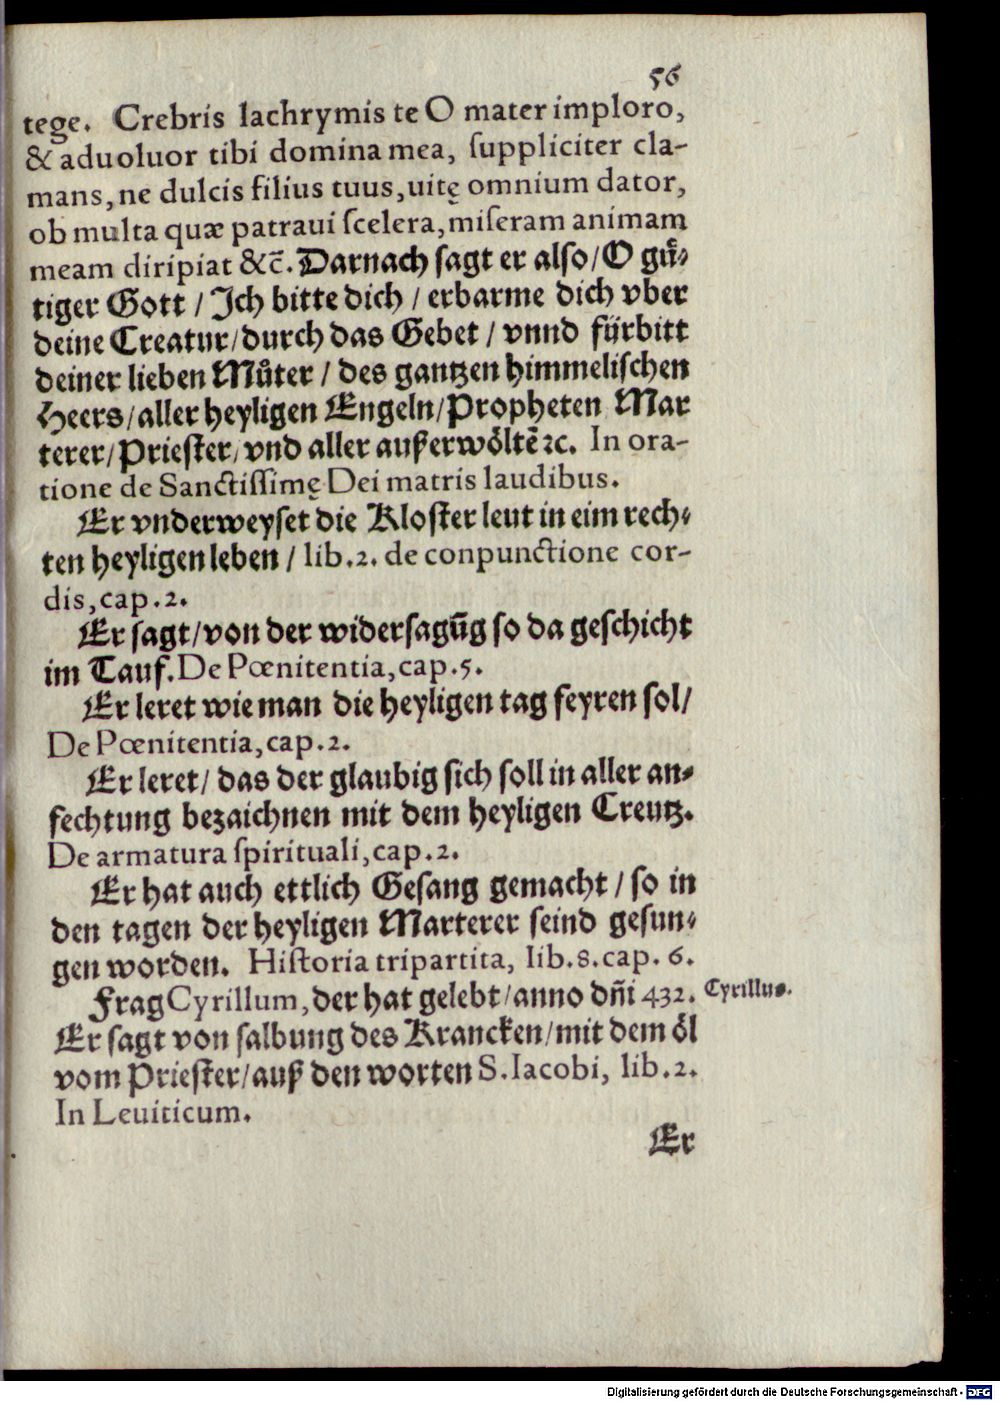 56
tege. Crebris lachrymis te O mater imploro,
& aduoluor tibi domina mea, ſuppliciter cla-
mans, ne dulcis filius tuus, uitę omnium dator,
ob multa quæ patraui ſcelera, miſeram animam
meam diripiat &c̃. Darnach sagt er also / O guͤ-
tiger Gott / Ich bitte dich / erbarme dich vber
deine Creatur / durch das Gebet / vnnd fürbitt
deiner lieben Muͦter / des gantzen himmelischen
Heers / aller heyligen Engeln / Propheten Mar
terer / Priester / vnd aller außerwoͤltẽ ꝛc. In ora-
tione de Sanctiſſimę Dei matris laudibus.
Er vnderweyset die Kloster leut in eim rech-
ten heyligen leben / lib. 2. de conpunctione cor-
dis, cap. 2.
Er sagt / von der widersagũg so da geschicht
im Tauf. De Pœnitentia, cap. 5.
Er leret wie man die heyligen tag feyren sol /
De Pœnitentia, cap. 2.
Er leret / das der glaubig sich soll in aller an-
fechtung bezaichnen mit dem heyligen Creutz.
De armatura ſpirituali, cap. 2.
Er hat auch ettlich Gesang gemacht / so in
den tagen der heyligen Marterer seind gesun-
gen worden. Hiſtoria tripartita, lib. 8. cap. 6.
Frag Cyrillum, der hat gelebt / anno dñi 432. Cyrillus.
Er sagt von salbung des Krancken / mit dem oͤl
vom Priester / auß den worten S. Iacobi, lib. 2.
In Leuiticum.
Er
Digitalisierung gefördert durch die Deutsche Forschungsgemeinschaft - DFG